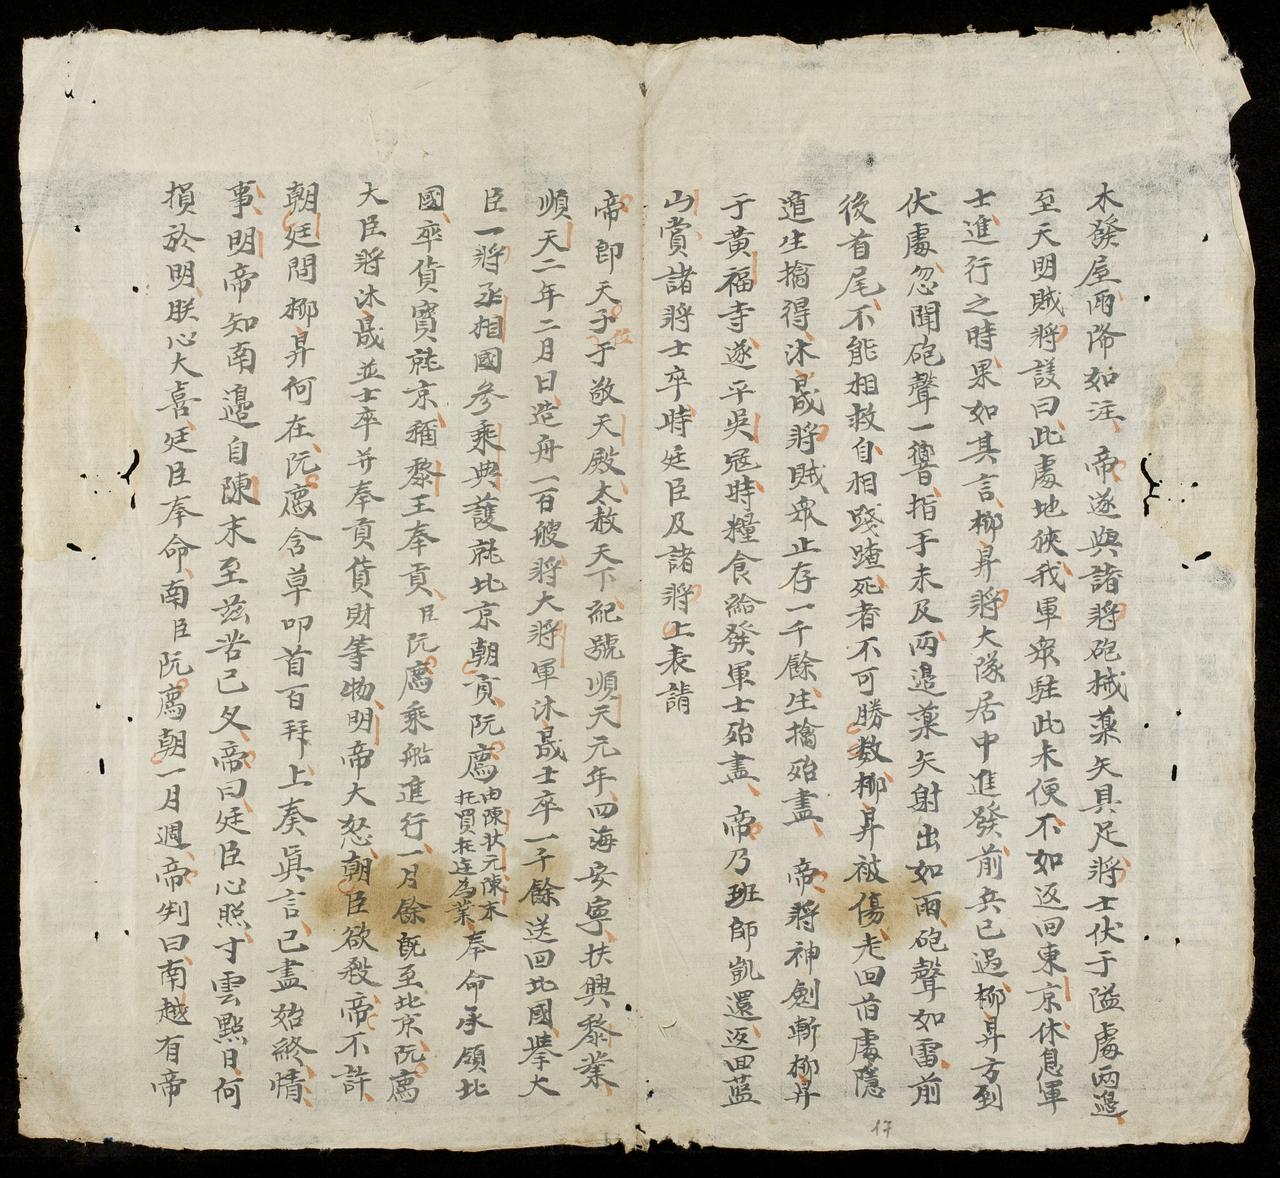 木發屋雨降如注帝遂與諸將砲械藥矢具足將士伏于隘處兩邊
至天明賊將議曰此處地狹我軍衆駐此未便不如返回東京休息軍
士進行之時果如其言柳昇將大隊居中進發前兵已過柳昇方到
伏處忽聞砲聲一響指手未及兩邊藥矢射出如雨砲聲如雷前
後首尾不能相救自相踐踏死者不可勝数柳昇被傷走回舊處隱
遁生擒得沐晟將賊衆止存一千餘生擒殆盡帝將神劍斬柳昇
于黃福寺遂平吳寇時糧食給發軍士殆盡帝乃班師凱還返回藍
山賞諸將士卒時廷臣及諸將上表請
帝即天子位于敬天殿太赦天下紀號順天元年四海安寧扶興黎業
順天二年二月日造舟一百艘將大將軍沐晟士卒一千餘送回北國擧大
臣一將丞相國參乘典護就北京朝貢阮廌由陳狀元陳末托買為業奉命承領北
國卒貨寳就京稱黎王奉貢臣阮廌乘船進行一月餘旣至北京阮廌
大臣將沐晟並士卒并奉貢貨財等物明帝大怒朝臣欲殺帝不許
朝廷問柳昇何在阮廌含草叩首百拜上奏眞言已盡始終情
事明帝知南邊自陳末至茲苦已久帝曰廷臣心照寸雲點日何
損於明朕心大喜廷臣奉命南臣阮廌朝一月週帝判曰南越有帝
17